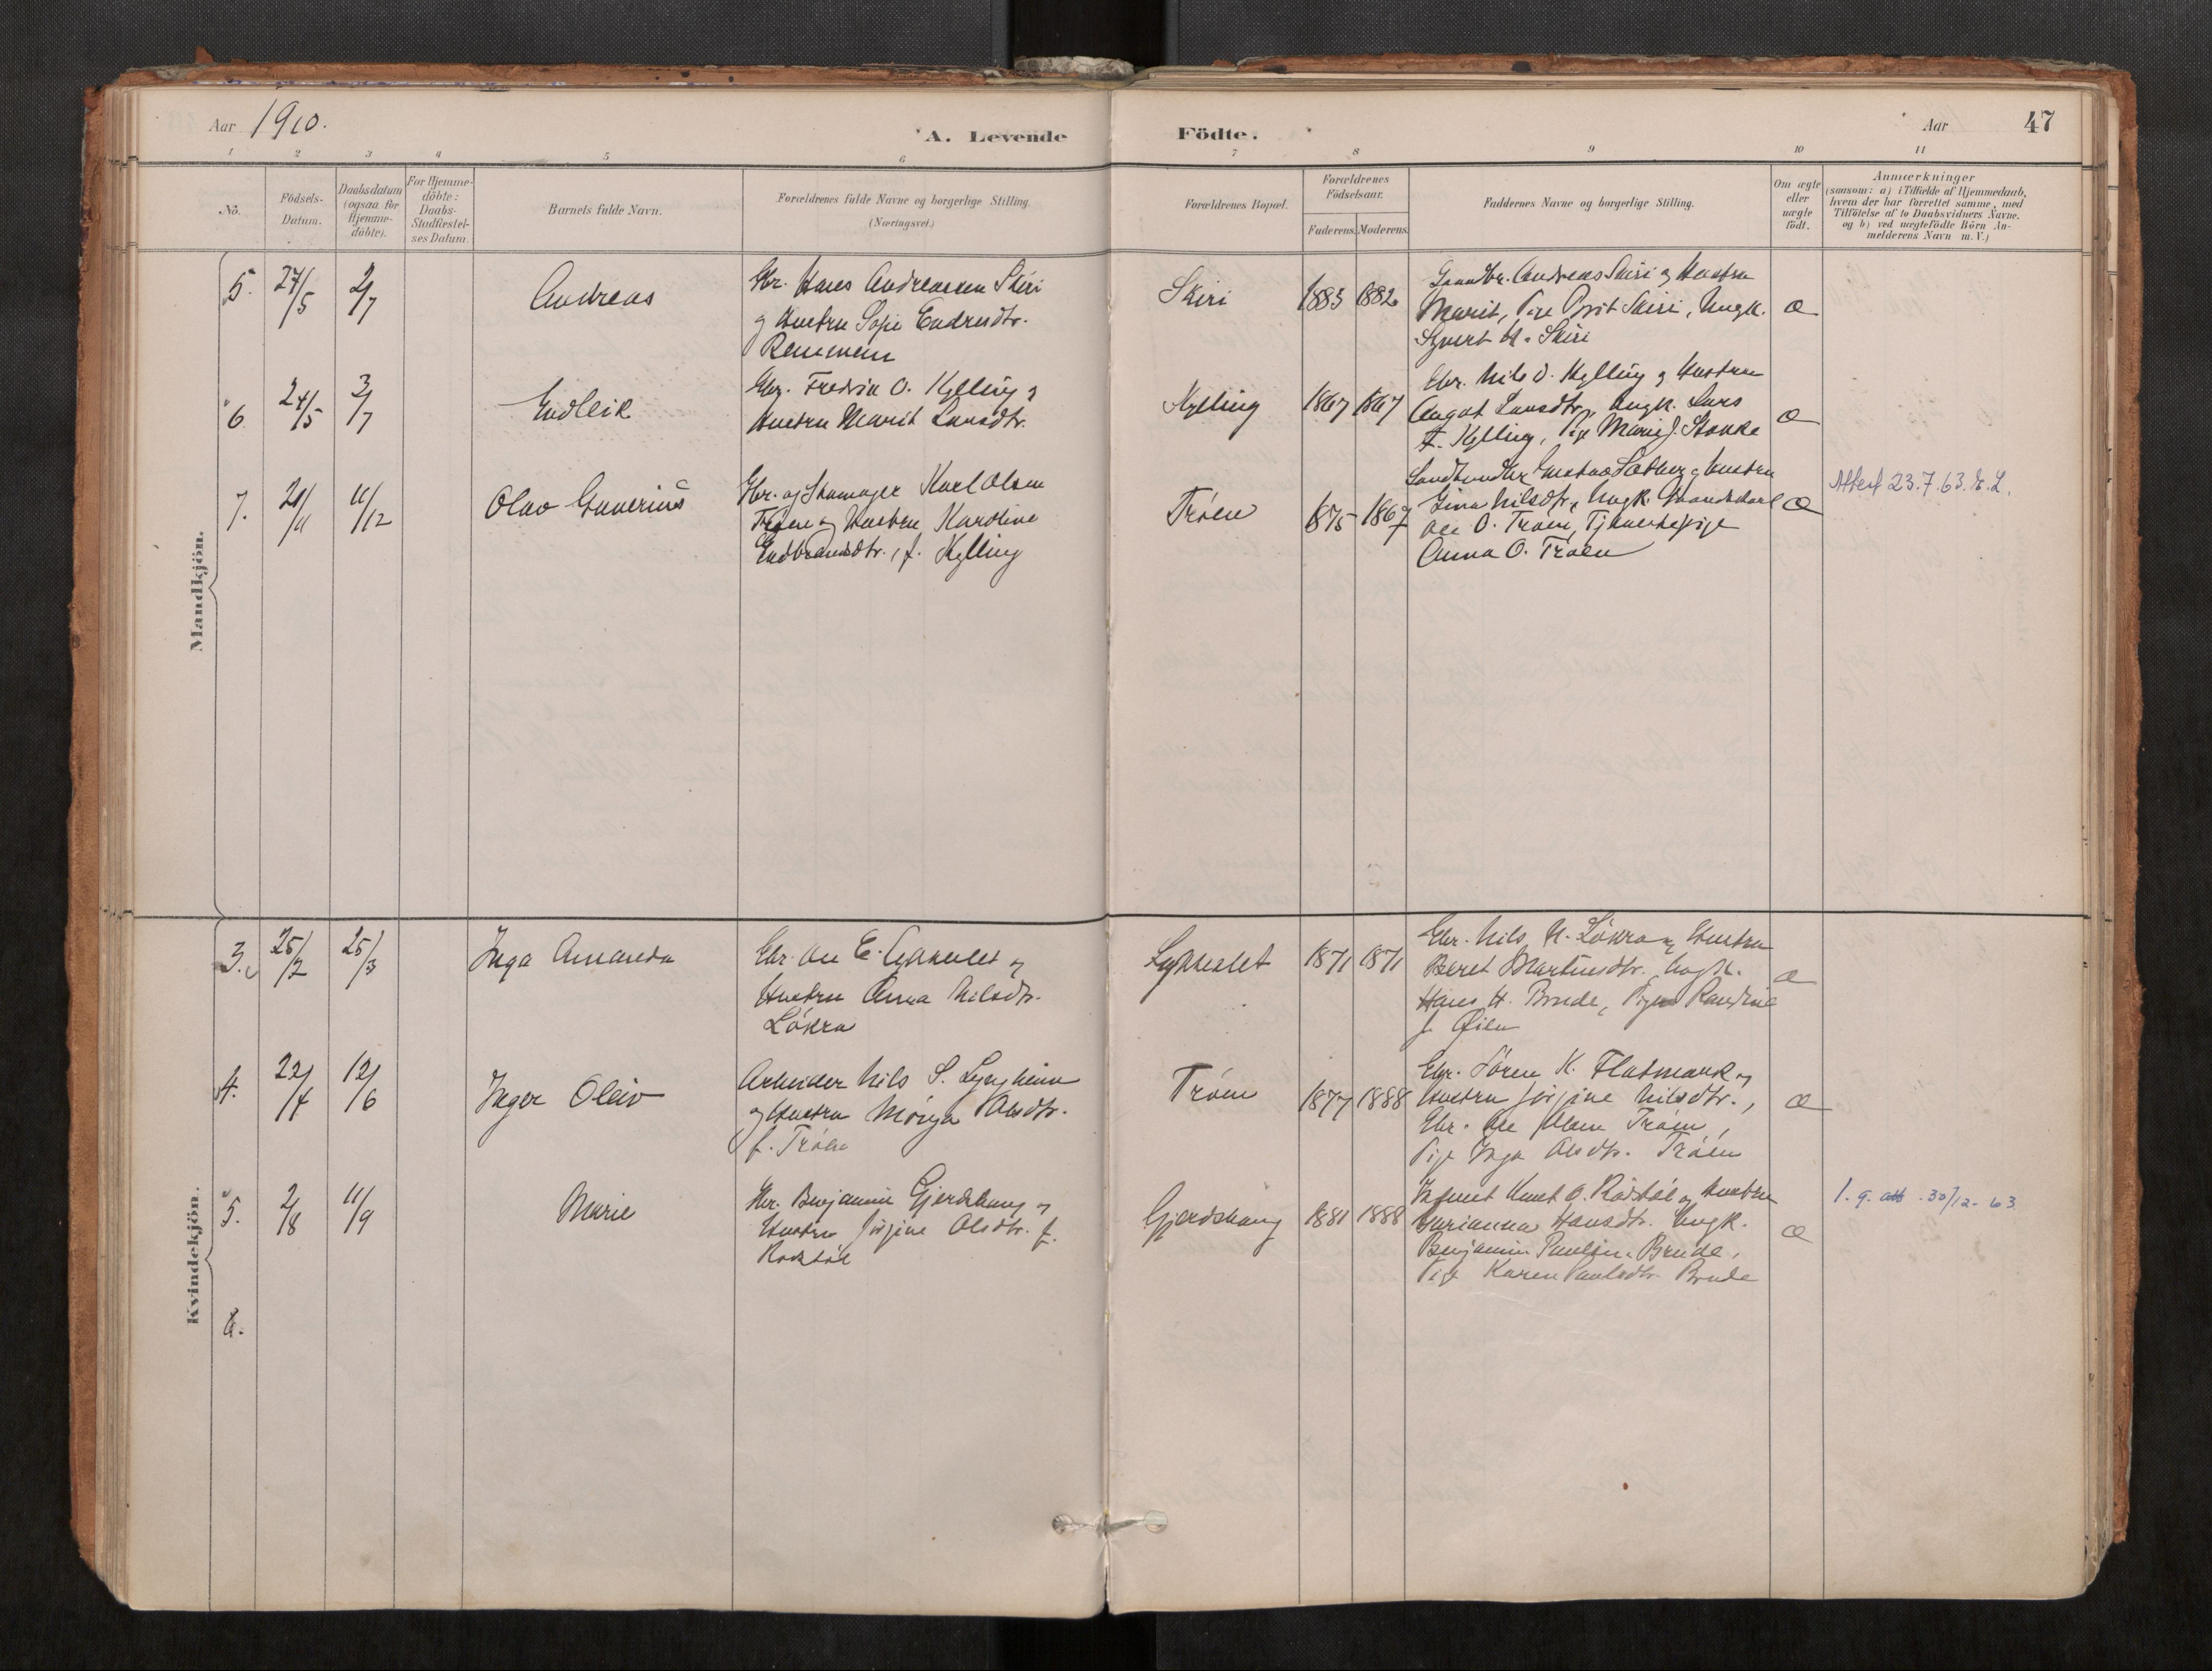 Aar 1910.
A. Levende
Födte.
Aar
47
1 2 3 4 5 6 7 8 9 10 11
No.
Födsels-
Datum.
Daabsdatum
(ogsaa for
Hjemme-
döbte).
For Hjemme-
döbte:
Daabs-
Stadfæstel-
ses Datum.
Barnets fulde Navn.
Forældrenes fulde Navne og borgerlige Stilling.
(Næringsvei.)
Forældrenes Bopæl.
Forældrenes
Födselsaar.
Faderens. Moderens.
Faddernes Navne og borgerlige Stilling.
Om ægte
eller
uægte
födt.
Anmærkninger
(saasom: a) i Tilfælde af Hjemmedaab,
hvem der har forrettet samme, med
Tilföielse af to Daabsvidners Navne.
og b) ved uægtefödte Börn An-
melderens Navn m. V.)
Mandkjön.
5. 27/5 2/7
Andreas
Gbr. Hans Andreassen Skiri
og Hustru Sofie Endresdtr.
Remmem
Skiri
1883 1882
Gaardbr. Andreas Skiri og Hustru
Marit, Pige Brit Skiri, Ungk.
Syvert H. Skiri
æ
6 24/5 3/7
Endleik
Gbr. Fredrik O. Kylling og
Hustru Marit Larsdtr.
Kylling
1867 1867
Gbr. Nils O. Kylling og Hustru
Angot Larsdtr., Ungk. Lars
F. Kylling, Pige Marie J. Stokke
æ
7. 20/11 11/12
Olav Gunerius
Gbr. og Skomager Karl Olsen
Tröen og Hustru Karoline
Endbrandsdtr., f. Kylling
Tröen
1875 1867
Landhandler Gustav Sætberg og Hustru
Gina Nilsdtr, Ungk.
Ole O. Tröen, Tjenestepige
Anna O. Tröen
æ
Attest 23.7.63. E.L.
Kvindekjön.
3. 25/2 25/3
Inga Amanda
Gbr. Ole E. Lykkeslet og
Hustru Anna Nilsdtr.
Lökra
Lykkeslet
1871 1871
Gbr. Nils N. Lökra og Hustru
Beret Martinsdtr. Ungk.
Hans H. Brude, Pige Randine
J. Öien
æ
4. 22/4 12/6
Inger Oleiv
Arbeider Nils S. Lyngheim
og Hustru Mörya Olsdtr.
f. Tröen
Tröen
1877 1888
Gbr. Sören K. Flatmark og
Hustru Jörgine Nilsdtr.,
Gbr. Ole Olsen Tröen,
Pige Inga Olsdtr. Tröen
æ
5. 2/8 11/9
Marie
Gbr. Benjamin Gjerdshaug og
Hustru Jörgine Olsdtr. f.
Rödstöl
Gjerdshaug
1881 1888
Knut O. Rödstöl og Hustru
Marianna Hansdtr. Ungk.
Benjamin Paulsen Brude,
Pige Karen Paulsdtr. Brude
æ
1. g. att. 30/12-63
6.